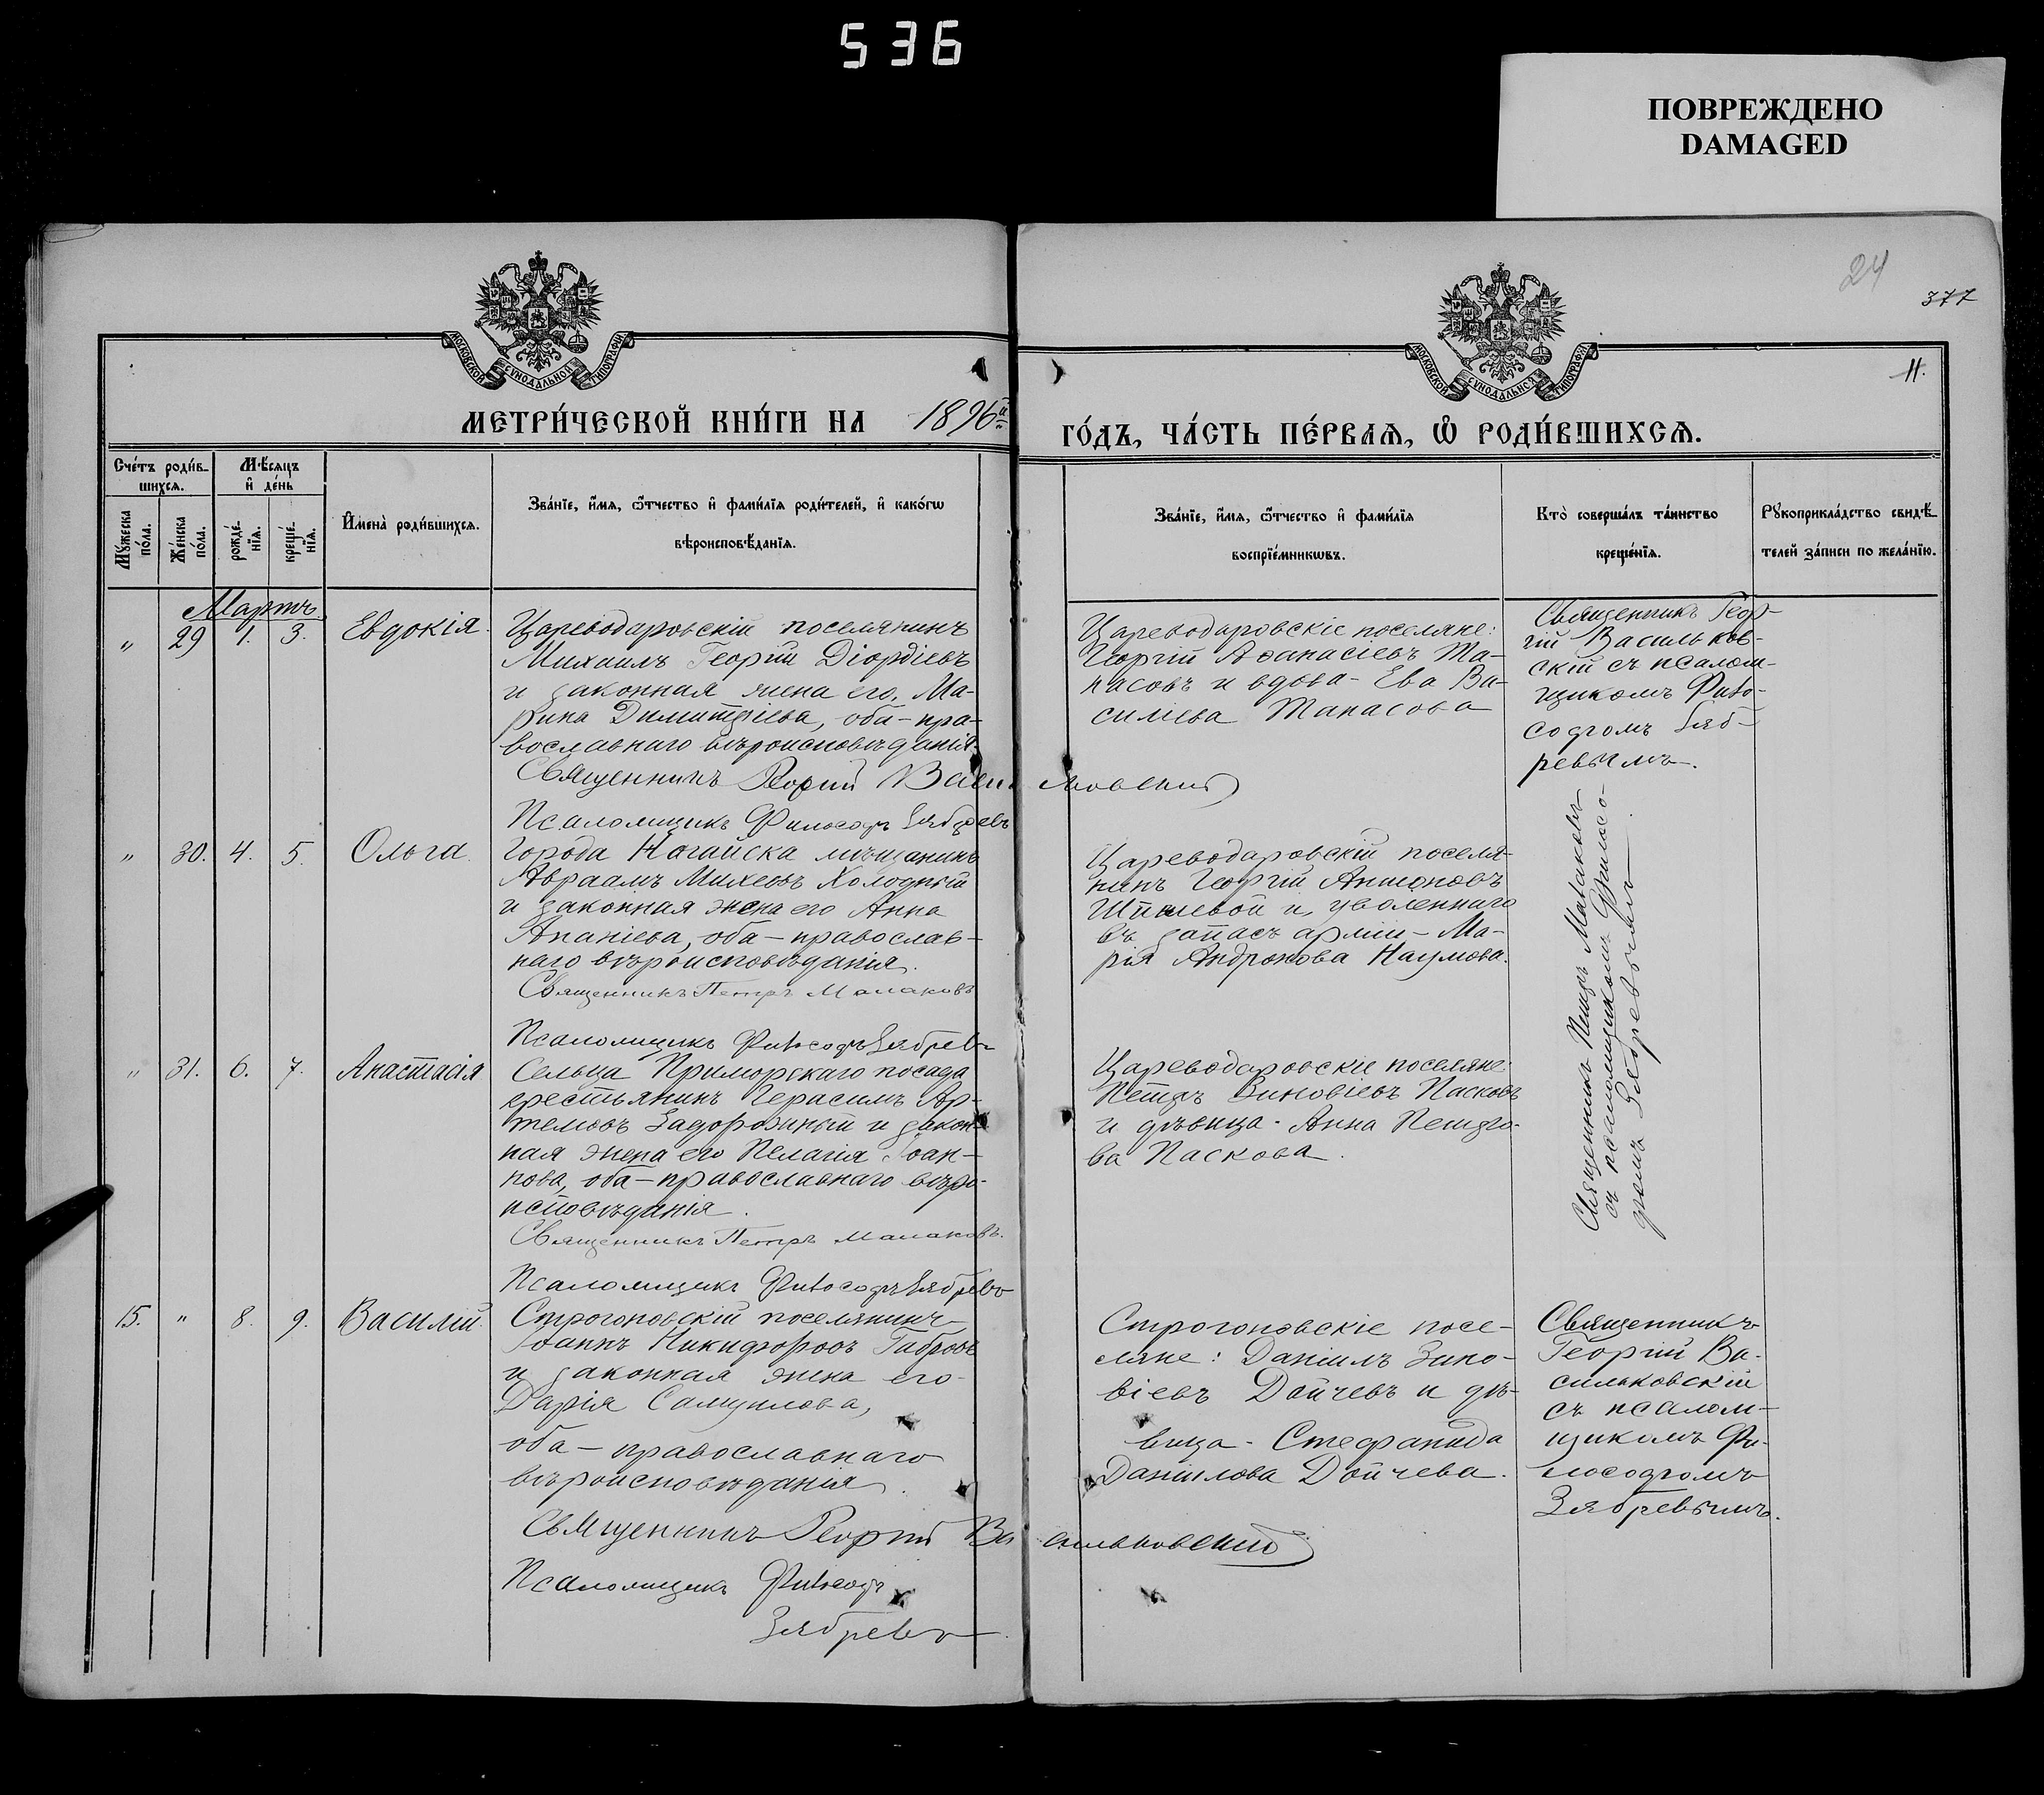 536
ПОВРЕЖДЕНО
DAMAGED
24
377
11.
МОСКОВСКОЙ СѴНОДАЛЬНОЙ ТИПОГРАФІИ
МОСКОВСКОЙ СѴНОДАЛЬНОЙ ТИПОГРАФІИ
МЕТРИ́ЧЕСКОЙ КНИ́ГИ НА 1896й
ГО́ДЪ, ЧА́СТЬ ПЕ́РВАѦ, Ѡ҆ РОДИ́ВШИХСѦ.
Сче́тъ роди́в-
шихсѧ.
Мꙋ́жеска по́ла.
Же́нска по́ла.
Мѣ́сѧцъ
и҆ де́нь
рожде́-
нїѧ.
креще́-
нїѧ.
И҆мена̀ роди́вшихсѧ.
Зва́нїе, и҆́мѧ, ѻ҆́тчество и҆ фами́лїѧ роди́телей, и҆ како́гѡ
вѣроисповѣ́данїѧ.
Зва́нїе, и҆́мѧ, ѻ҆́тчество и҆ фами́лїѧ
воспрїе́мникѡвъ.
Кто̀ соверша́лъ та́инство
креще́нїѧ.
Рꙋкоприкла́дство свидѣ́-
телей за́писи по жела́нїю.
Мартъ
" 29 1. 3. Евдокія.
Цареводаровскій поселянинъ
Михаилъ Георгіи Діордіевъ
и законная жена его, Ма-
рина Димитріева, оба-пра-
вославнаго вѣроисповѣданія.
Священникъ Георгій Васильковскій
Псаломщикъ Философъ Зябревъ
Цареводаровскіе поселяне:
Георгій Аѳанасіевъ Та-
насовъ и вдова - Ева Ва-
силіева Танасова
Священникъ Геор-
гій Васильков-
скій съ псалом-
щикомъ Фило-
софомъ Зяб-
ревымъ.
" 30. 4. 5. Ольга.
Города Ногайска мѣщанинъ
Авраамъ Михеевъ Холодный
и законная жена его Анна
Ананіева, оба-православ-
наго вѣроисповѣданія.
Священникъ Петръ Малаковъ
Псаломщикъ Философъ Зябревъ
Цареводаровскій поселя-
нинъ Георгій Антоновъ
и, уволеннаго
въ запасъ арміи - Ма-
рія Андронова Наумова.
Священникъ Петръ Малаковъ
съ псаломщикомъ Филосо-
фомъ Зябревымъ
" 31. 6. 7. Анастасія
Сельца Приморскаго посада
крестьянинъ Герасимъ Ар-
темовъ Задорожный и закон-
ная жена его Пелагія Іоан-
нова, оба-православнаго вѣро-
исповѣданія.
Священникъ Петръ Малаковъ.
Псаломщикъ Философъ Зябревъ
Цареводаровскіе поселяне:
Петръ Зиновіевъ Пасковъ
и дѣвица - Анна Петро-
ва Паскова.
15. " 8. 9. Василій.
Строгоновскій поселянинъ
Іоаннъ Никифоровъ Габровъ
и законная жена его
Дарія Самуилова,
оба - православнаго
вѣроисповѣданія.
Священникъ Георгій Васильковскій
Псаломщикъ Философъ
Зябревъ
Строгоновскіе посе-
ляне: Даніилъ Зино-
віевъ Дойчевъ и дѣ-
вица - Стефанида
Даніилова Дойчева.
Священникъ
Георгій Ва-
сильковскій
съ псалом-
щикомъ Фи-
лософомъ
Зябревымъ.